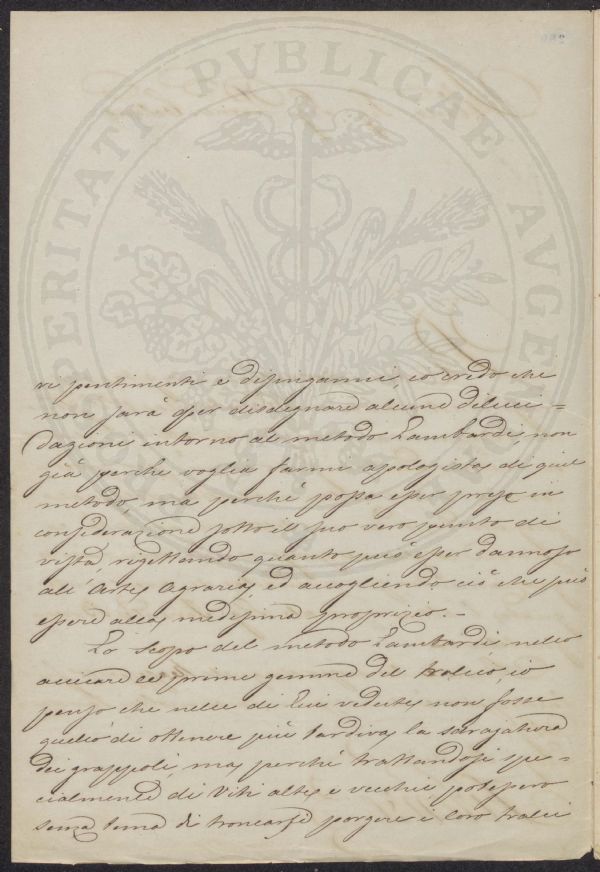 PROSPERITATI PVBLICAE AVGENDAE
ri pentimenti e disinganni, io credo che
non sarà per disdegnare alcune diluci=
dazioni intorno al metodo Lambardi, non
già perche voglia farmi apologista di quel
metodo, ma perchè possa esser preso in
considerazione sotto il suo vero punto di
vista, rigettando quanto può esser dannoso
all'Arte Agraria, ed accogliendo ciò che può
essere alla medesima proprizio. –
Lo scopo del metodo Lambardi, nello
accecare le prime gemme del tralcio, io
penso che nelle di Lui vedute non fosse
quello di ottenere più tardiva la
dei grappoli, ma perchè trattandosi spe=
cialmente di Viti alte e vecchie potessero
senza tema di troncarsi porgere i loro tralci